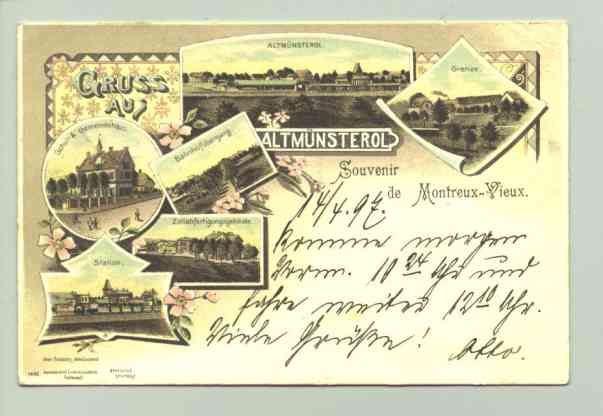 GRUSS
AUS
ALTMÜNSTEROL.
Grenze.
Schul & Gemeindehaus.
Bahnhofübergang
ALTMUNSTEROL
Souvenir
de Montreux-Vieux.
Zollabfertigungsgebäude.
Station.
14/4. 97.
Komme morgen
Vorm. 10 24 Uhr und
fahre weiter 12 10 Uhr.
Viele Grüße!
Otto.